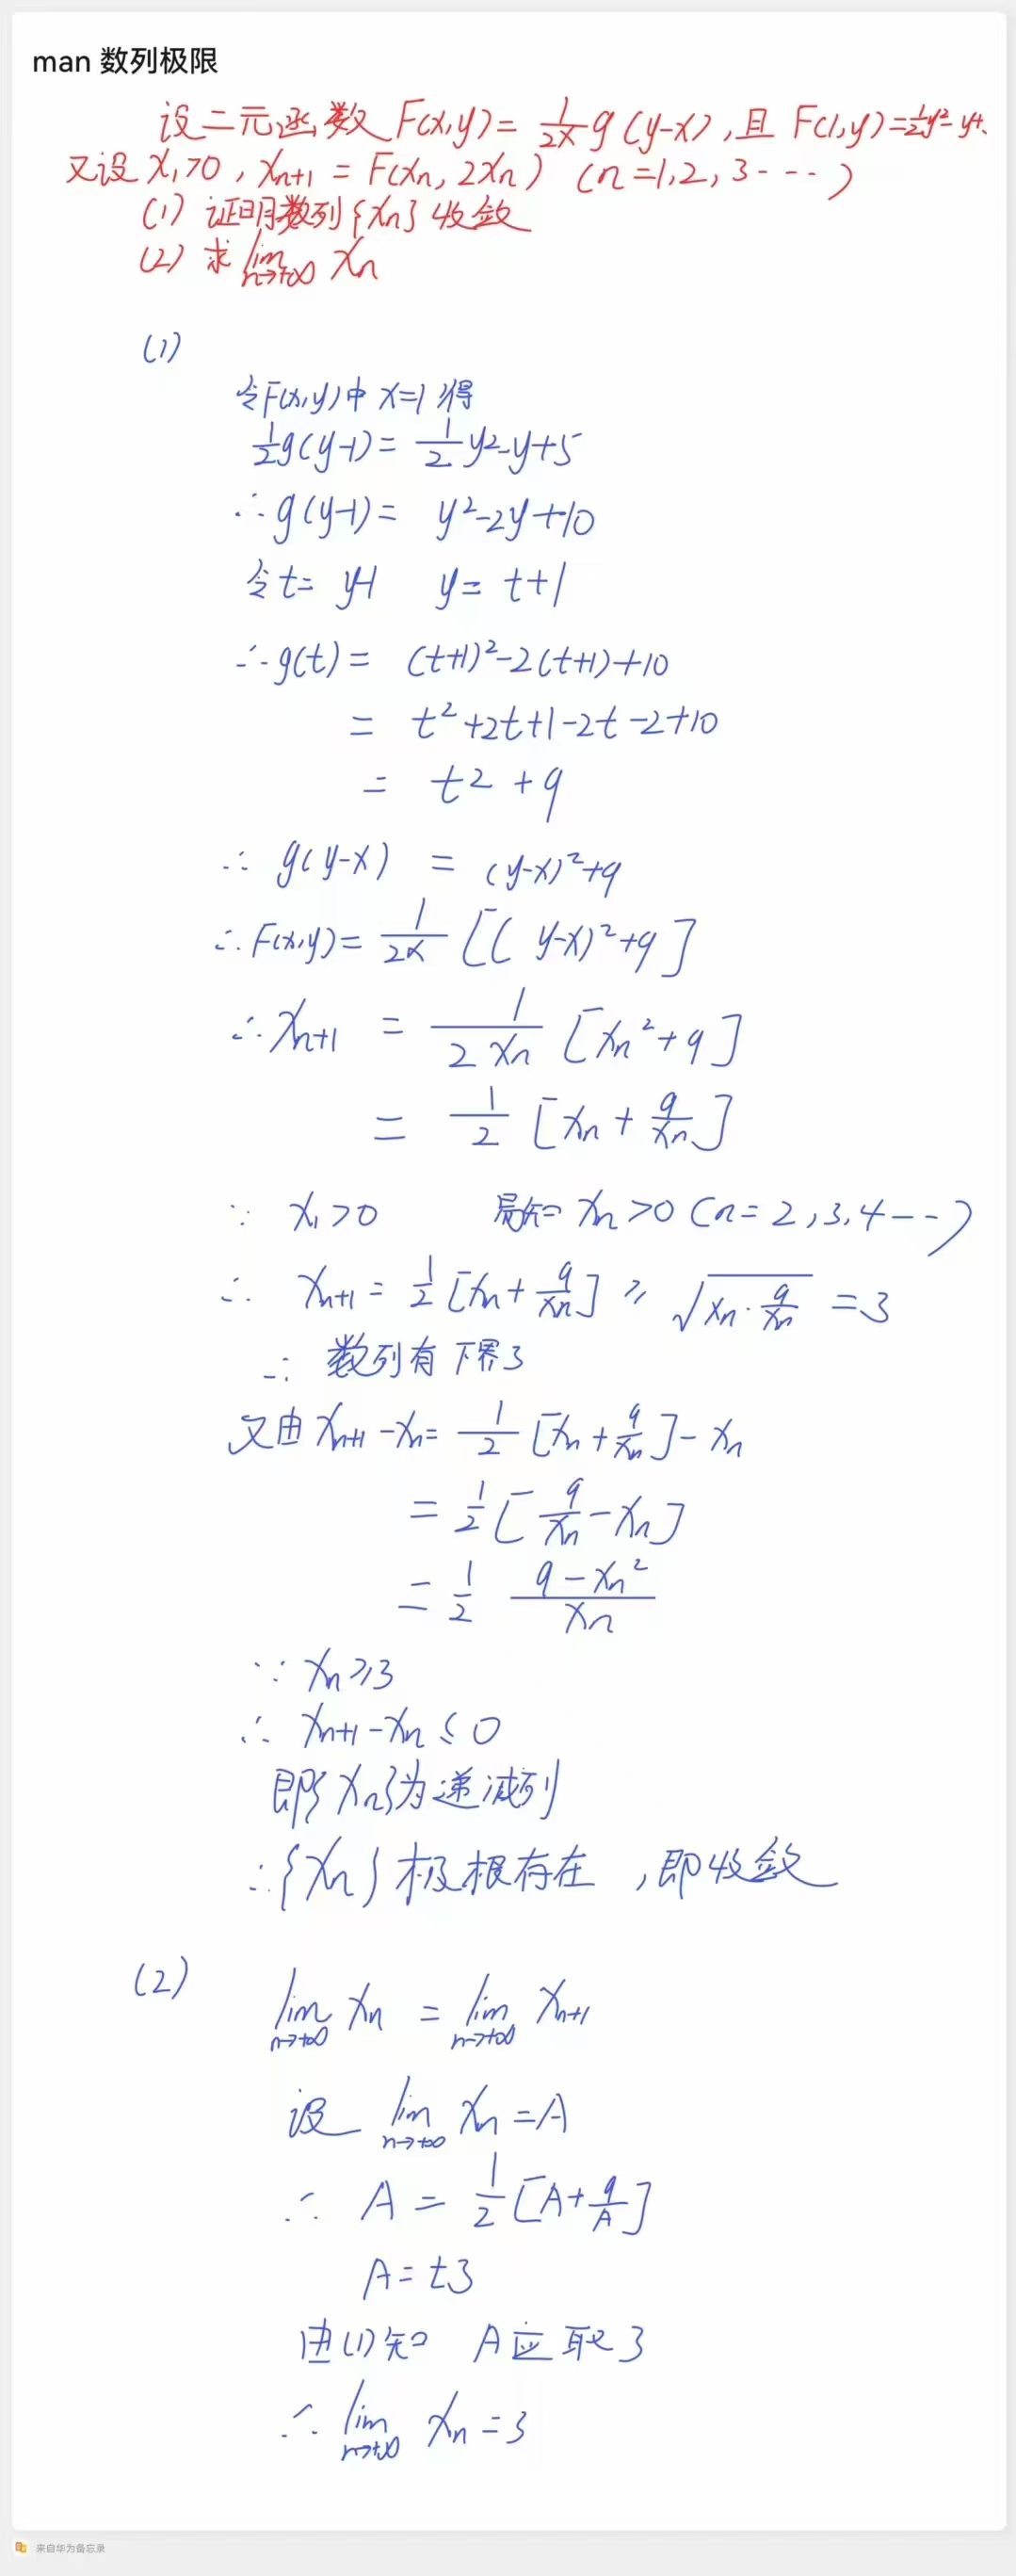 man 数列极限
设二元函数F(x,y)=1/2x g(y-x),且 F(1,y)=1/2y²-y+
又设x₁>0,xₙ₊₁=F(xₙ,2xₙ) (n=1,2,3----)
(1) 证明数列{xₙ}收敛
(2) 求 lim n→+∞ xₙ
(1)
令F(x,y)中 x=1得
1/2g(y-1)=1/2y²-y+5
∴g(y-1)= y²-2y+10
令t= y-1 y= t+1
∴g(t)= (t+1)²-2(t+1)+10
= t²+2t+1-2t-2+10
= t²+9
∴ g(y-x) = (y-x)²+9
∴F(x,y)=1/2x [(y-x)²+9]
∴xₙ₊₁ = 1/2xₙ [xₙ²+9]
= 1/2 [xₙ+9/xₙ]
∵ x₁>0 易知 xₙ>0(n=2,3,4---)
∴ xₙ₊₁=1/2[xₙ+9/xₙ] ≥ √(xₙ·9/xₙ) =3
∴ 数列有下界3
又由xₙ₊₁-xₙ=1/2[xₙ+9/xₙ]-xₙ
=1/2[9/xₙ-xₙ]
=1/2 (9-xₙ²)/xₙ
∵ xₙ≥3
∴ xₙ₊₁-xₙ≤0
即{xₙ}为递减列
∴{xₙ}极根存在,即收敛
(2) lim n→+∞ xₙ = lim n→+∞ xₙ₊₁
设 lim n→+∞ xₙ=A
∴ A = 1/2[A+9/A]
A=±3
由(1)知 A应取3
∴ lim n→+∞ xₙ=3
来自华为备忘录